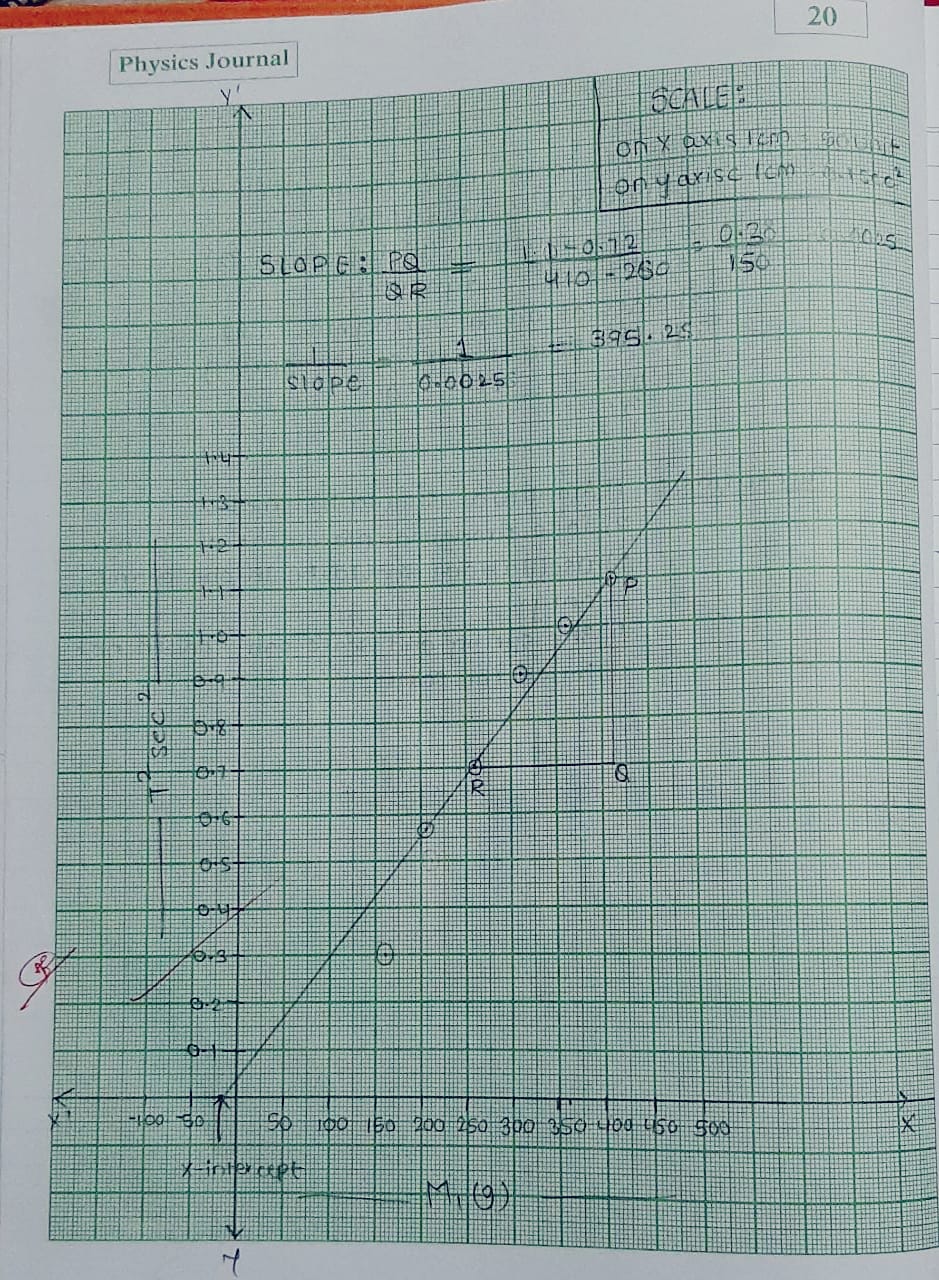 20
Physics Journal
Y'
SCALE:
on X axis 1cm
on y axise 1cm
SLOPE: PQ/QR = 1.1-0.72/410-260 = 0.38/150
1/slope = 1/0.0025 = 395.25
1.4
1.3
1.2
1.1
P
1.0
0.9
0.8
0.7
R
Q
0.6
0.5
0.4
0.3
0.2
0.1
T² sec²
X' -100 -50 50 100 150 200 250 300 350 400 450 500 X
x-intercept
M₁(g)
Y